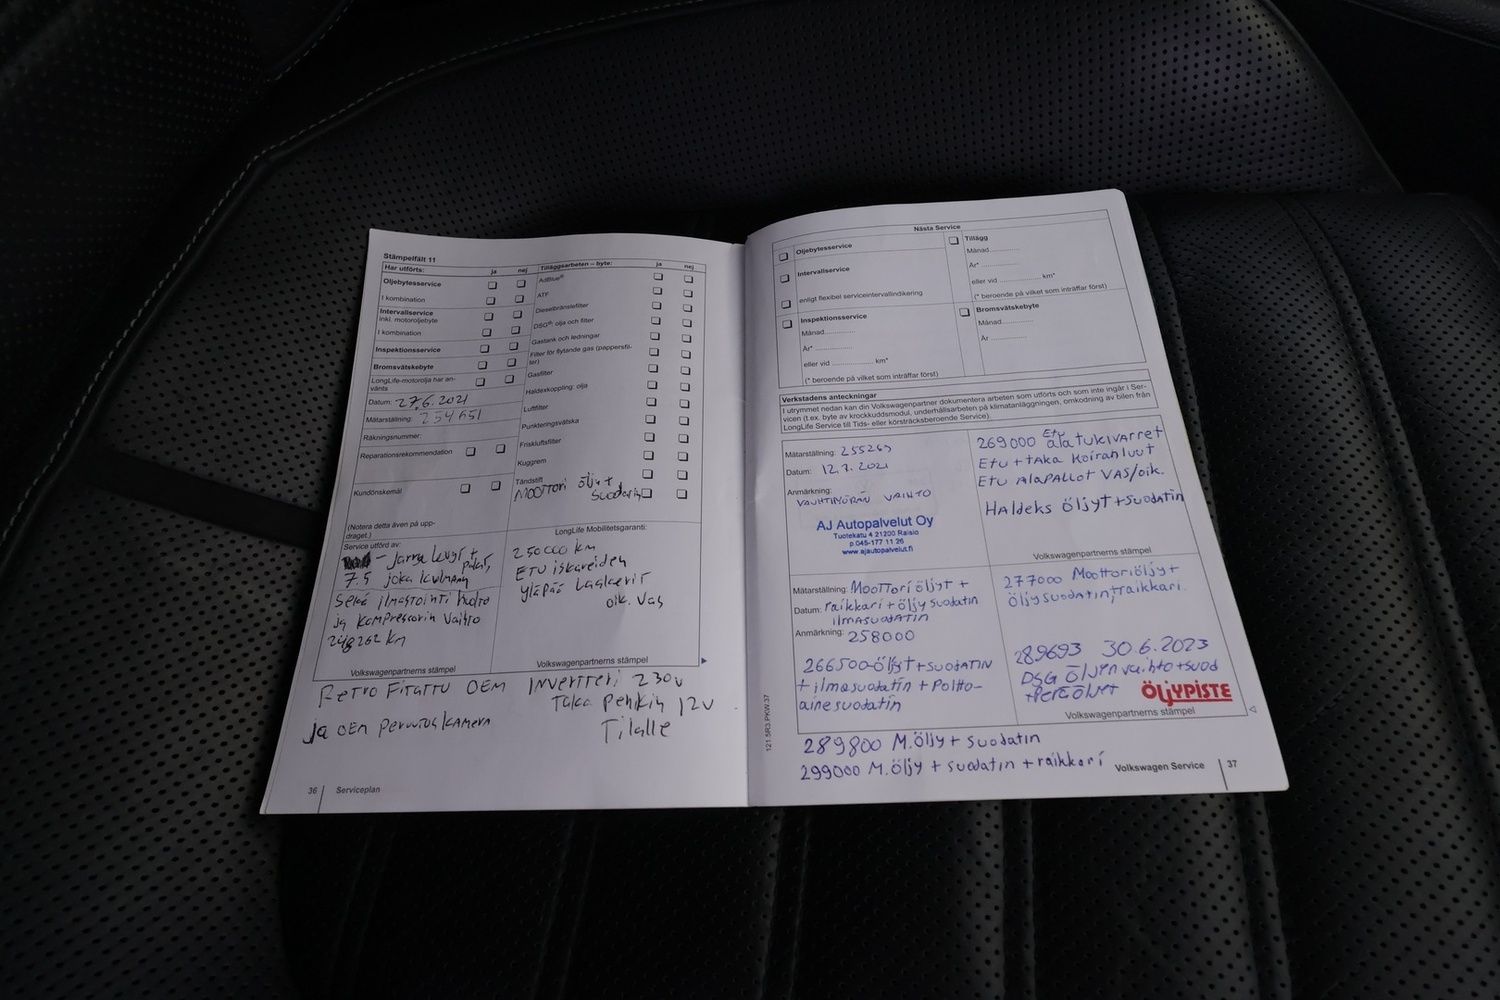 Stämpelfält 11
Har utförts: ja nej
Oljebytesservice
I kombination
Intervallservice
inkl. motoroljebyte
I kombination
Inspektionsservice
Bromsvätskebyte
LongLife-motorolja har an-
vänts
Datum: 27.6.2021
Mätarställning: 254651
Räkningsnummer:
Reparationsrekommendation
Kundönskemål
(Notera detta även på upp-
draget.)
Tilläggsarbeten – byte: ja nej
AdBlue®
ATF
Dieselbränslefilter
DSG® olja och filter
Gastank och ledningar
Filter för flytande gas (pappersfil-
ter)
Gasfilter
Haldexkoppling: olja
Luftfilter
Punkteringsvätska
Friskluftsfilter
Kuggrem
Tändstift
Moottori öljyt +
Suodatin
Service utförd av:
- Jarru levyt +
palat,
7.5 joka kulmaan
Sekä ilmastointi huolto
ja kompressorin vaihto
248262 km
Volkswagenpartnerns stämpel
LongLife Mobilitetsgaranti:
250000 km
ETU iskareiden
yläpää laakerit
oik. vas
Volkswagenpartnerns stämpel
Retro Fitattu OEM
ja OEM peruutuskamera
Invertteri 230v
Taka penkin 12v
Tilalle
36 Serviceplan
Nästa Service
Oljebytesservice
Intervallservice
enligt flexibel serviceintervallindikering
Inspektionsservice
Månad
År*
eller vid km*
(* beroende på vilket som inträffar först)
Tillägg
Månad
År*
eller vid km*
(* beroende på vilket som inträffar först)
Bromsvätskebyte
Månad
År
Verkstadens anteckningar
I utrymmet nedan kan din Volkswagenpartner dokumentera arbeten som utförts och som inte ingår i Ser-
vicen (t.ex. byte av krockkuddsmodul, underhållsarbeten på klimatanläggningen, omkodning av bilen från
LongLife Service till Tids- eller körsträcksberoende Service).
Mätarställning: 255269
Datum: 12.7.2021
Anmärkning:
VAUHTIPYÖRÄN VAIHTO
AJ Autopalvelut Oy
Tuotekatu 4 21200 Raisio
p.045-177 11 26
www.ajautopalvelut.fi
269000 Etu alatukivarret
Etu + taka Koiranluut
Etu Alapallot VAS/oik.
Haldeks öljyt + suodatin
Volkswagenpartnerns stämpel
Mätarställning: Moottori öljyt +
Datum: raikkari + öljysuodatin
ilmasuodatin
Anmärkning: 258000
266500-öljyt + SUODATIN
+ ilmasuodatin + Poltto-
ainesuodatin
277000 Moottoriöljyt +
öljysuodatin, raikkari.
289693 30.6.2023
DSG Öljynvaihto + suod
+ peräöljyt
ÖLJYPISTE
Volkswagenpartnerns stämpel
289800 M.öljy + suodatin
299000 M.öljy + suodatin + raikkari
121.5R3.PKW.37
Volkswagen Service 37